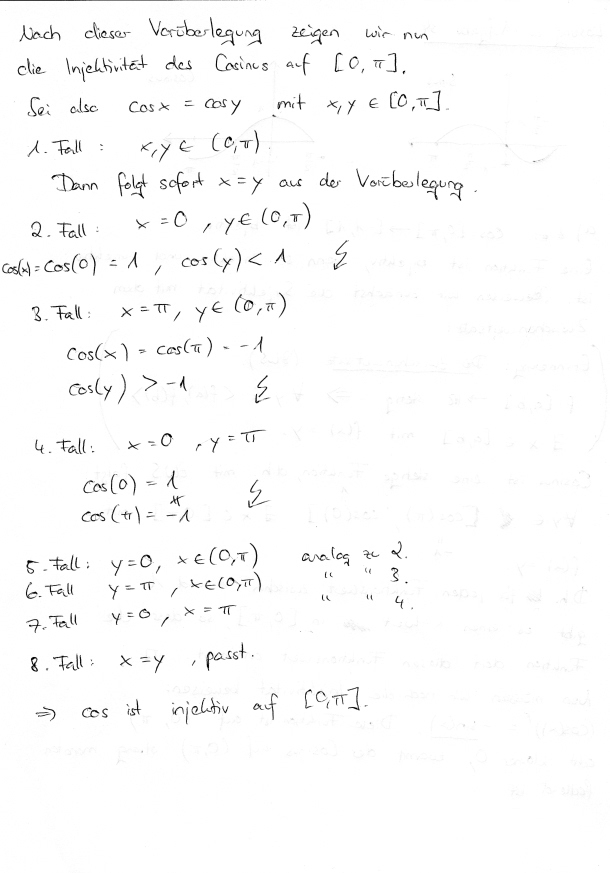 Nach dieser Vorüberlegung zeigen wir nun
die Injektivität des Cosinus auf [0, π].
Sei also cos x = cos y mit x, y ∈ [0, π].
1. Fall : x, y ∈ (0, π)
Dann folgt sofort x = y aus der Vorüberlegung.
2. Fall : x = 0 , y ∈ (0, π)
cos(x) = cos(0) = 1 , cos(y) < 1 ↯
3. Fall : x = π, y ∈ (0, π)
cos(x) = cos(π) = -1
cos(y) > -1 ↯
4. Fall : x = 0 , y = π
cos(0) = 1
≠ ↯
cos(π) = -1
5. Fall : y = 0, x ∈ (0, π) analog zu 2.
6. Fall y = π , x ∈ (0, π) " " 3.
7. Fall y = 0 , x = π " " 4.
8. Fall : x = y , passt.
⇒ cos ist injektiv auf [0, π].